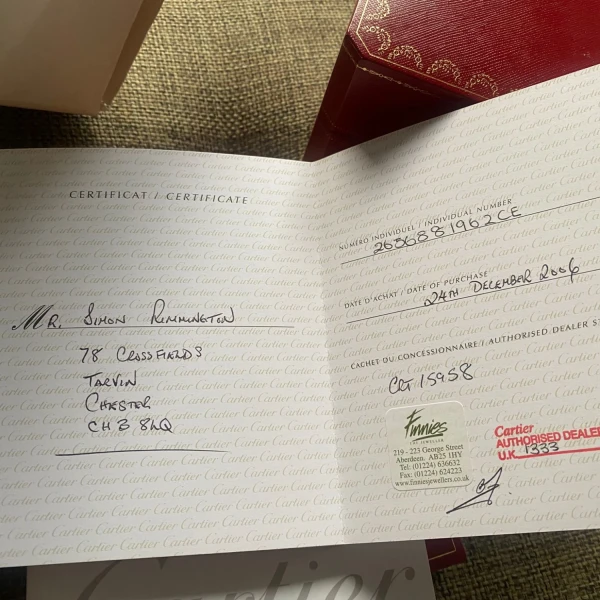 CERTIFICAT / CERTIFICATE
MR. SIMON RIMMINGTON
78 CROSSFIELDS
TARVIN
CHESTER
CH3 8LQ
NUMÉRO INDIVIDUEL / INDIVIDUAL NUMBER
2656881962CE
DATE D'ACHAT / DATE OF PURCHASE
24TH DECEMBER 2006
CACHET DU CONCESSIONNAIRE / AUTHORISED DEALER
CRT 15958
Finnies
THE JEWELLER
219 - 223 George Street
Aberdeen. AB25 1HY
Tel: (01224) 636632
Fax: (01224) 624223
www.finniesjewellers.co.uk
Cartier
AUTHORISED DEALER
U.K. 1333
Cartier